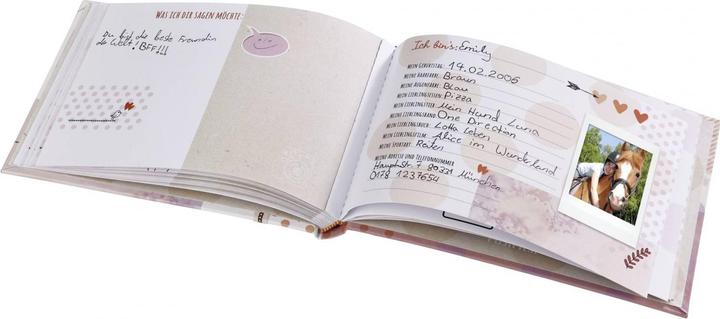 WAS ICH DIR SAGEN MÖCHTE:
Du bist die beste Freundin
der Welt! BFF!!!
Ich bin's: Emily
MEIN GEBURTSTAG: 14.02.2006
MEINE HAARFARBE: Braun
MEINE AUGENFARBE: Blau
MEIN LIEBLINGSESSEN: Pizza
MEIN LIEBLINGSTIER: Mein Hund Luna
MEINE LIEBLINGSBAND: One Direction
MEIN LIEBLINGSBUCH: Lotta Leben
MEIN LIEBLINGSFILM: Alice im Wunderland
MEINE SPORTART: Reiten
MEINE ADRESSE UND TELEFONNUMMER
Hauptstr. 7 80331 München
0178 1237654